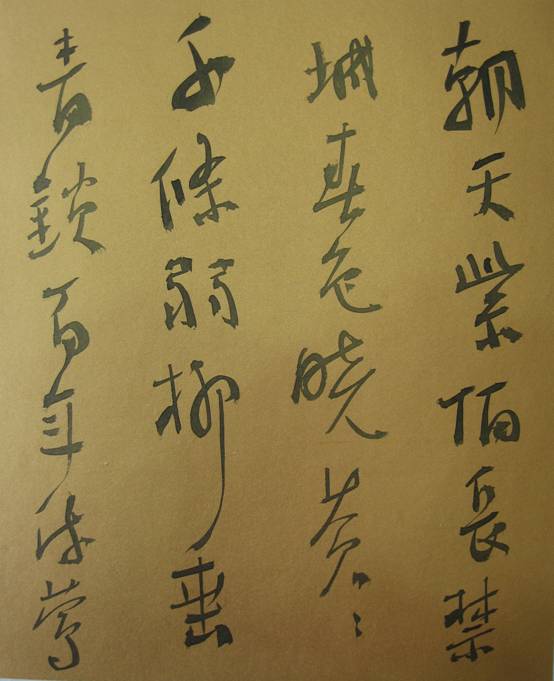 朝天紫陌長禁
城春色曉蒼々
千條弱柳垂
青鎖百流鶯